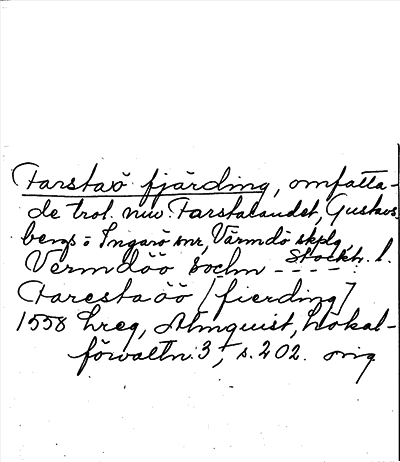 Farstaö fjärding, omfatta-
de trol. nuv. Farstalandet, Gustavs-
bergs o Ingarö snr, Värmdö skplg,
Vermdöö sochn - - - - Stockh. l.
Farestaöö [fierding]
1558 hreg, Almquist, Lokal-
förvaltn. 3, s. 202. orig